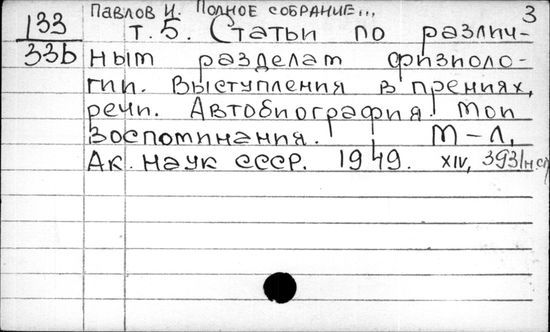 Павлов И. Полное собрание... 3
133 т. 5. Статьи по различ-
33b ным разделам физиоло-
гии. Выступления в прениях,
речи. Автобиография. Мои
воспоминания. М-Л,
Ак. наук СССР. 1949. XIV, 393